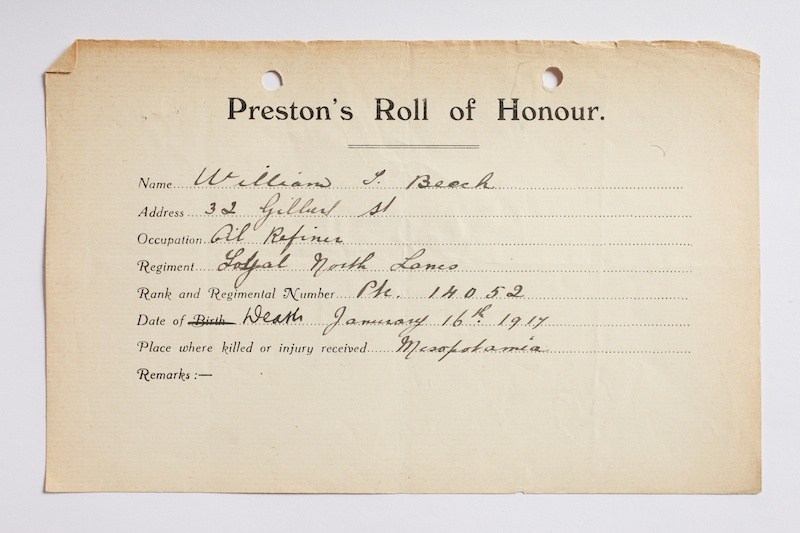 Preston's Roll of Honour.
Name William J. Beech
Address 32 Gilbert St
Occupation Oil Refiner
Regiment Loyal North Lancs
Rank and Regimental Number Pte. 14052
Date of Birth Death January 16th 1917
Place where killed or injury received Mesopotamia
Remarks:—